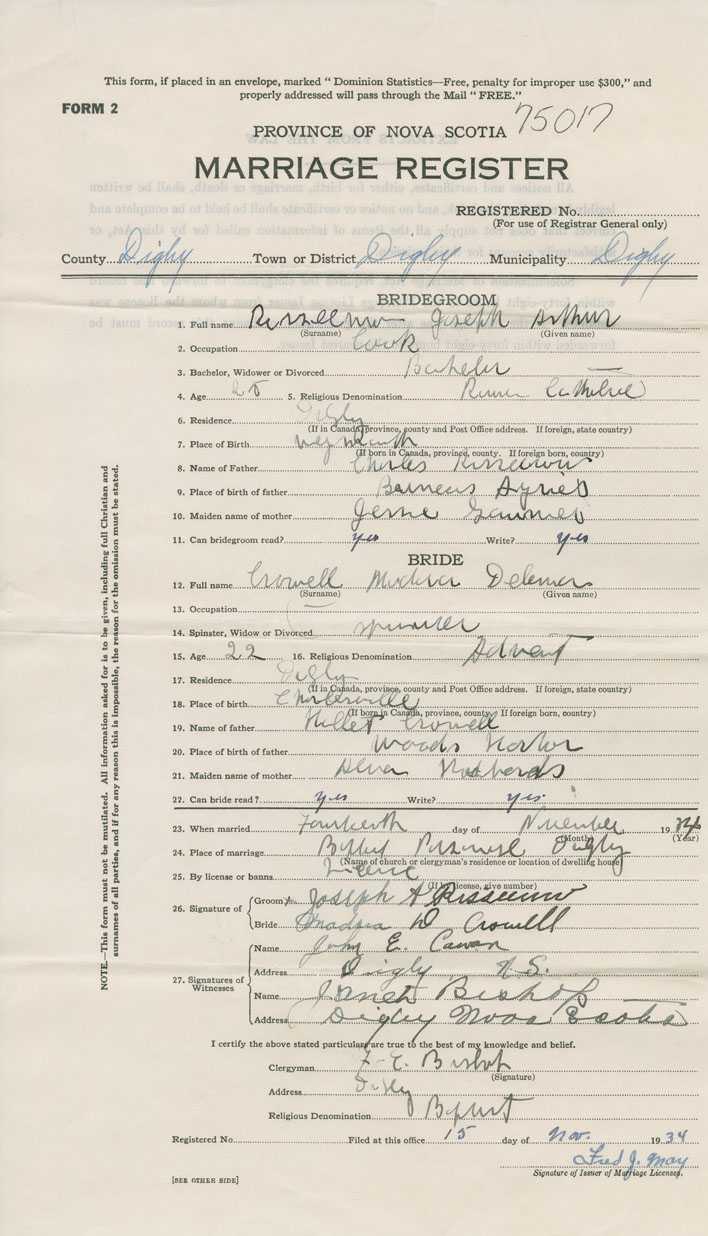 This form, if placed in an envelope, marked " Dominion Statistics—Free, penalty for improper use $300," and
properly addressed will pass through the Mail " FREE."
FORM 2
75017
PROVINCE OF NOVA SCOTIA
MARRIAGE REGISTER
REGISTERED No.
(For use of Registrar General only)
County Digby Town or District Digby Municipality Digby
BRIDEGROOM
1. Full name Joseph Arthur
(Surname) (Given name)
2. Occupation Cook
3. Bachelor, Widower or Divorced Bachelor
4. Age 28 5. Religious Denomination Roman Catholic
6. Residence Digby
(If in Canada, province, county and Post Office address. If foreign, state country)
7. Place of Birth Weymouth
(If born in Canada, province, county. If foreign born, country)
8. Name of Father Charles
9. Place of birth of father
10. Maiden name of mother
11. Can bridegroom read? yes Write? yes
BRIDE
12. Full name Crowell
(Surname) (Given name)
13. Occupation —
14. Spinster, Widow or Divorced spinster
15. Age 22 16. Religious Denomination Advent
17. Residence Digby
(If in Canada, province, county and Post Office address. If foreign, state country)
18. Place of birth
(If born in Canada, province, county. If foreign born, country)
19. Name of father Crowell
20. Place of birth of father Woods Harbor
21. Maiden name of mother
22. Can bride read? yes Write? yes
23. When married Fourteenth day of November 1934
(Month) (Year)
24. Place of marriage Digby
(Name of church or clergyman's residence or location of dwelling house)
25. By license or banns License
(If license, give number)
26. Signature of Groom Joseph A
Bride D Crowell
27. Signatures of Witnesses
Name John E. Cowan
Address Digby N.S.
Name Janet Bishop
Address Digby Nova Scotia
I certify the above stated particulars are true to the best of my knowledge and belief.
Clergyman F. E. Bishop
(Signature)
Address Digby
Religious Denomination Baptist
Registered No. Filed at this office 15 day of Nov. 1934
Fred J. May
Signature of Issuer of Marriage Licenses.
[SEE OTHER SIDE]
NOTE.—This form must not be mutilated. All information asked for is to be given, including full Christian and
surnames of all parties, and if for any reason this is impossible, the reason for the omission must be stated.